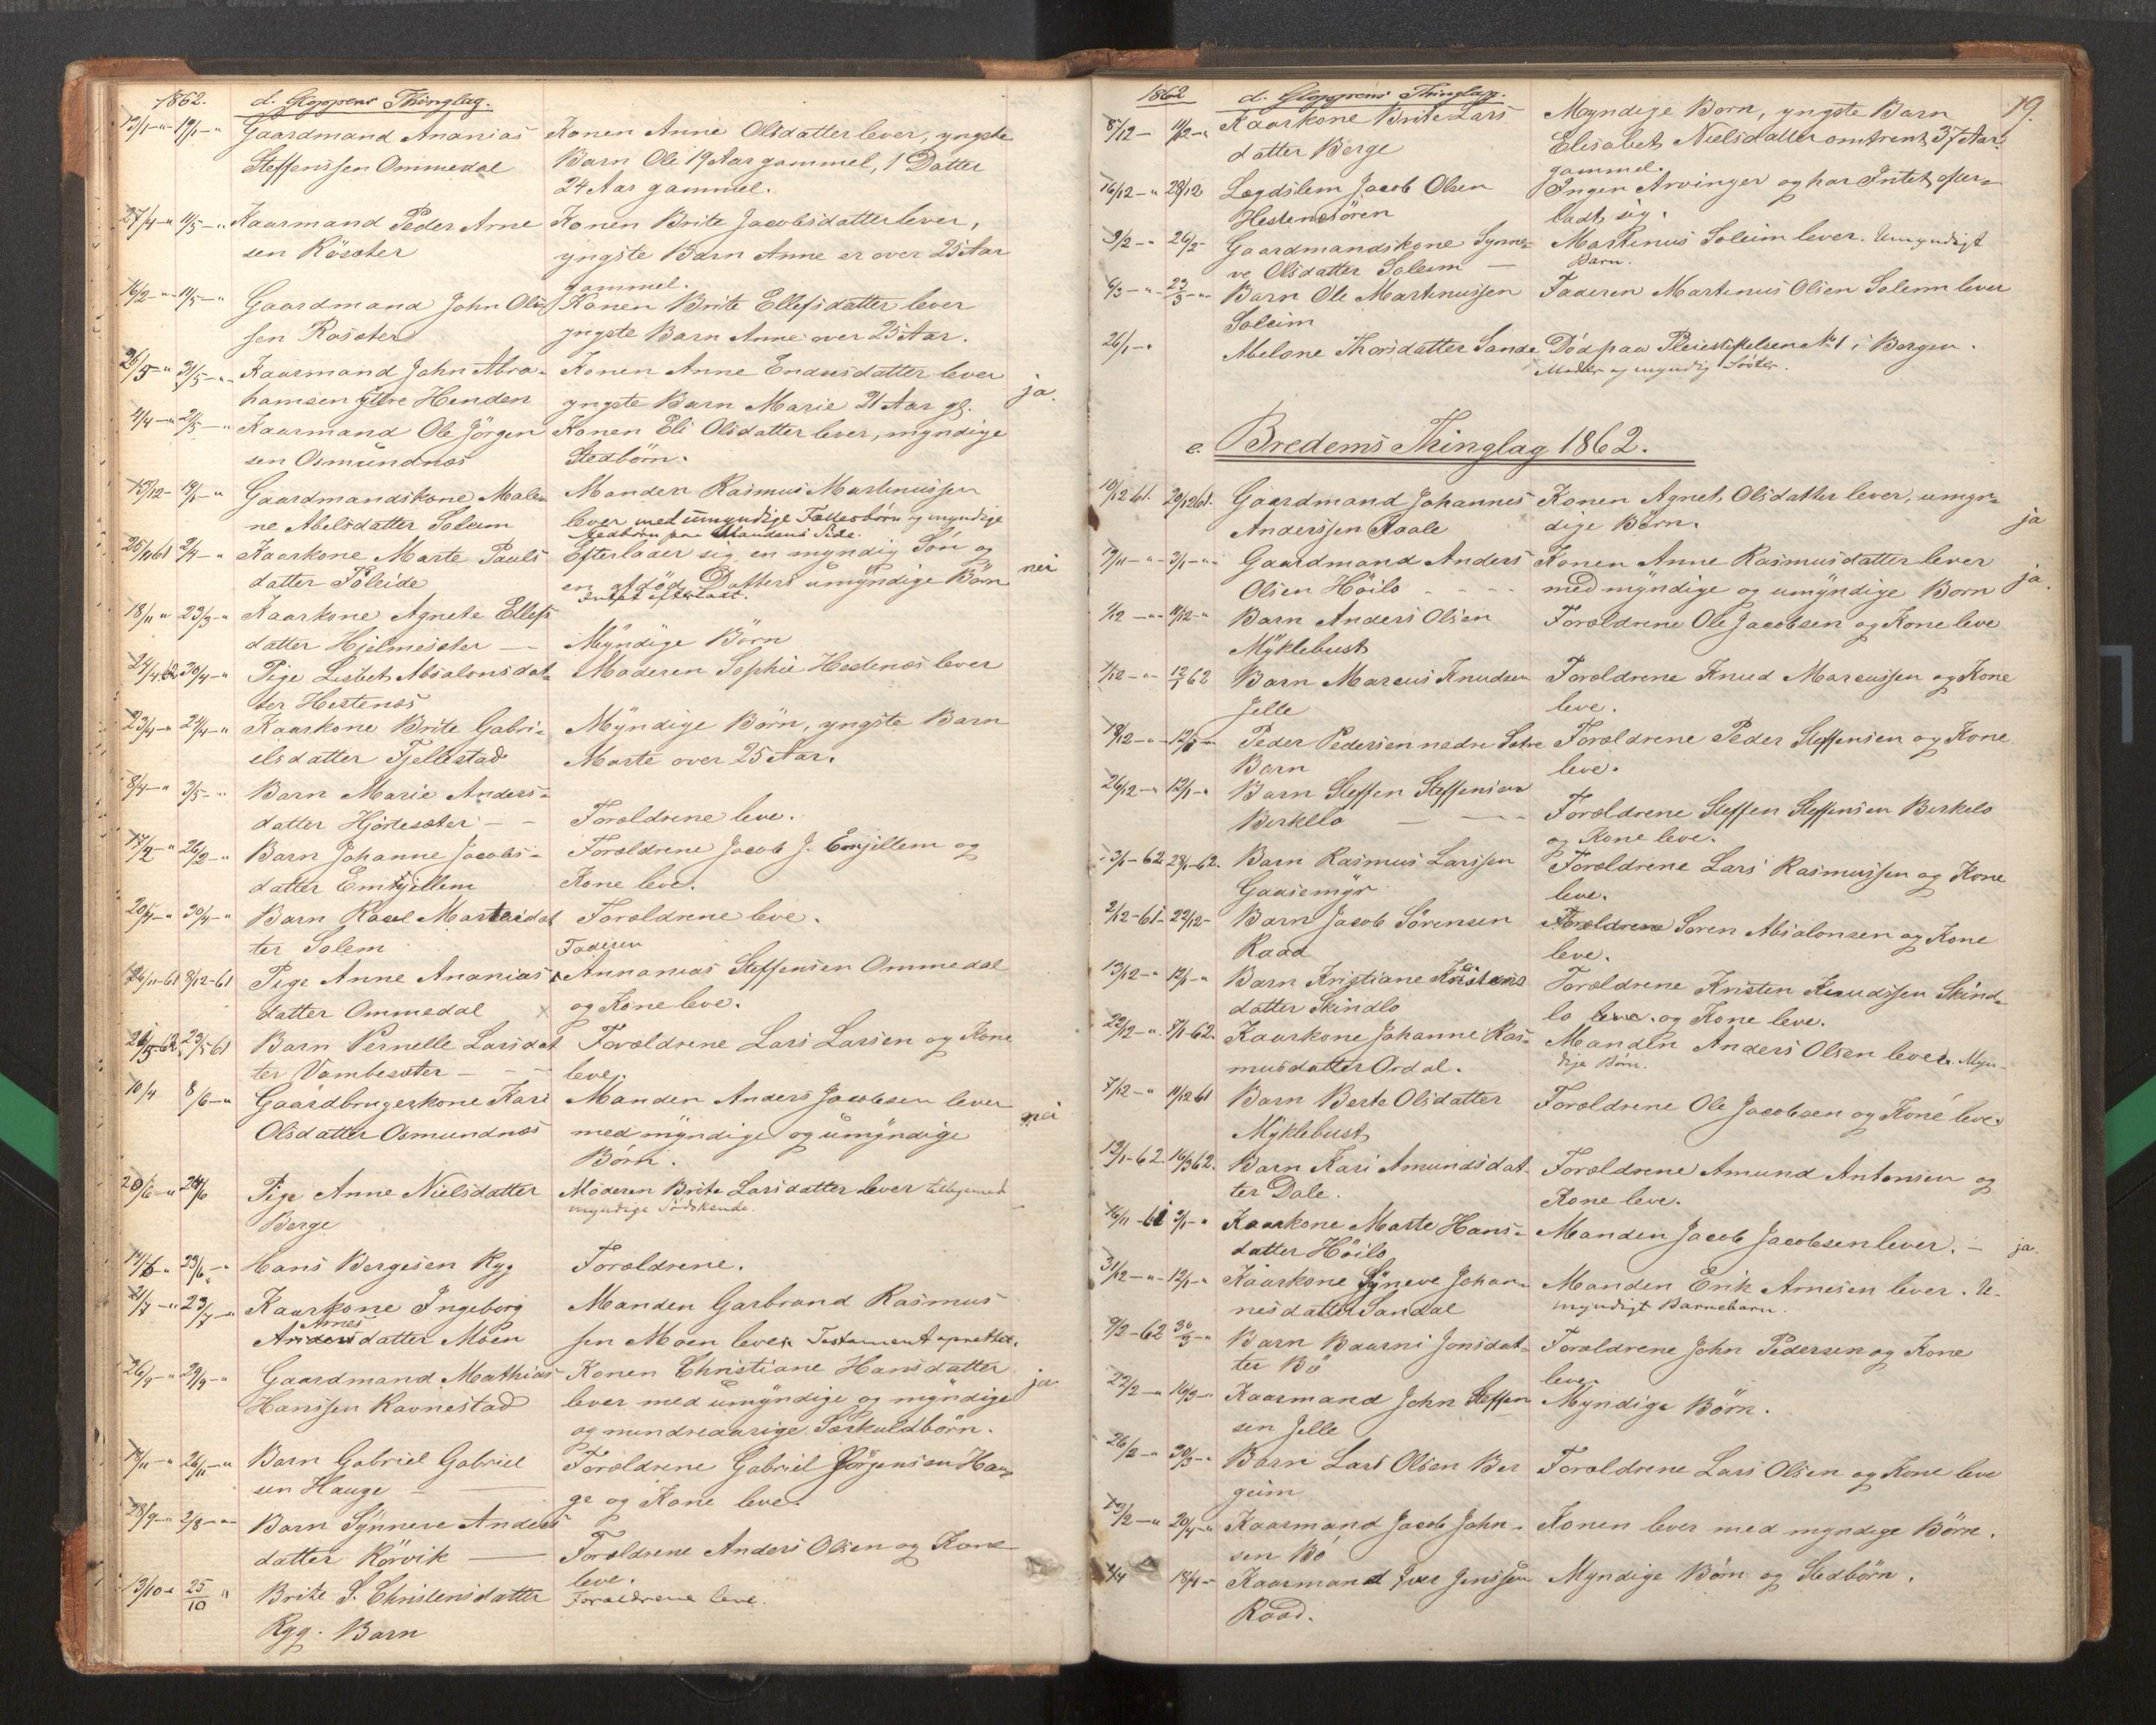 1862. d. Gloppens Thinglag.
13/1 -"- 19/1 -"- Gaardmand Ananias Konen Anne Olsdatter lever, yngste
Steffenssen Ommedal Barn Ole 19 Aar gammel, 1 Datter
24 Aar gammel.
27/4 -" 11/5 -" Kaarmand Peder Arne Konen Brite Jacobsdatter lever,
sen Rösæter yngste Barn Anne er over 25 Aar
gammel.
16/2 -"- 11/5 -" Gaardmand John Ole Konen Brite Ellefsdatter lever
sen Rosæter yngste Barn Anne over 25 Aar.
26/5 -" 31/5 -"- Kaarmand John Abra- Konen Anne Endresdatter lever
hamsen ÿttre Henden yngste Barn Marie 21 Aar gl. ja.
4/4 -" 2/5 -" Kaarmand Ole Jörgen Konen Eli Olsdatter lever, myndige
sen Osmundnæs Stedbörn.
15/12 - 19/1 -" Gaardmandskone Male- Manden Rasmus Martinussen
ne Abelsdatter Soleim lever med umyndige Fællesbörn og myndige
Stedbörn paa Mandens Side.
25/11 61 2/4 -" Kaarkone Marte Pauls Efterlader sig en myndig Sön og
datter Föleide en afdöd Datters umyndige Börn nei
Intet efterladt.
18/11 " 23/3 -" Kaarkone Agnete Ellefs
datter Hjelmesæter — Myndige Börn
24/4.62 30/4 -" Pige Lisbet Absalonsdat- Moderen Sophie Hestenæs lever
ter Hestenæs
23/4 -" 24/4 -" Kaarkone Brite Gabri- Myndige Börn, yngste Barn
elsdatter Fjellestad Marte over 25 Aar.
8/4 -" 3/5 -" Barn Marie Anders-
datter Hjörtesæter — Forældrene leve.
17/2 -" 26/2 -" Barn Johanne Jacobs- Forældrene Jacob J. Emjellem og
datter Emhjellem Kone leve.
20/4 -" 30/4 -" Barn Martasdat Forældrene leve.
ter Solem
26/11-61 8/12-61 Pige Anne Ananias Faderen Annanias Steffensen Ommedal
datter Ommedal og Kone leve.
23/5 61 Barn Pernelle Larsdat Forældrene Lars Larsen og Kone
ter Vambesæter — leve.
10/4 8/6 -" Gaardbrugerkone Kari Manden Anders Jacobsen lever
Olsdatter Osmundnæs med myndige og umyndige nei
Börn.
20/6 -" 24/6 Pige Anne Nielsdatter Moderen Brite Larsdatter lever tilligemed
Berge myndige Södskende.
23/6 -" Hans Bergesen Ryg Forældrene.
21/7 -" 23/7 -" Kaarkone Ingeborg Manden Garbrand Rasmus
Arnes
Anders datter Moen sen Moen lever. Testament oprettet.
26/9 -" 29/9 -" Gaardmand Mathias Konen Christiane Hansdatter
Hanssen Ravnestad lever med umyndige og myndige ja
og mindreaarige Særkuldbörn.
14/11 -" 26/11 -" Barn Gabriel Gabriel Forældrene Gabriel Jörgensen Hau
sen Hauge — ge og Kone leve.
28/9 -" 2/8 -"- Barn Synneve Anders
datter Rörvik — Forældrene Anders Olsen og Kone
leve.
13/10 - 25/10 " Brite S. Christensdatter Forældrene leve.
Ryg. Barn
1862 d. Gloppens Thinglag. 19.
5/12 - 11/12 -" Kaarkone Brite Lars Myndige Börn, yngste Barn
datter Berge Elisabet Nielsdatter omtrent 37 Aar
gammel.
16/12 -" 28/12 Lægdslem Jacob Olsen Ingen Arvinger og har Intet efter-
Hestenesören ladt sig.
3/2 -" 26/2 - Gaardmandskone Synne- Martinus Soleim lever. Umyndigt
ve Olsdatter Soleim — Barn.
6/3 -" 23/3 -" Barn Ole Martinussen Faderen Martinus Olsen Solem lever
Soleim
26/1 -" Abelone Thorsdatter Sande Död paa Pleiestiftelsen No 1 i Bergen.
Moder og myndig Söster.
e. Bredems Thinglag 1862.
10/12 61. 20/12 61. Gaardmand Johannes Konen Agnet, Olsdatter lever, umyn-
Anderssen Aaale dige Börn. ja
19/11 -"- 3/1 -"- Gaardmand Anders Konen Anne Rasmusdatter lever
Olsen Höilo med myndige og umyndige Born ja.
1/12 -"- 11/12 -" Barn Anders Olsen Forældrene Ole Jacobsen og Kone leve
Myklebust
4/12 -"- 12/1 62 Barn Marcus Knudsen Forældrene Knud Marcussen og Kone
Jelle leve.
18/12 -"- 12/1 - Peder Pedersen nedre Sætre Forældrene Peder Steffensen og Kone
Barn leve.
26/12 -" 12/1 -" Barn Steffen Steffensen Forældrene Steffen Steffensen Berkelo
Birkelo — og Kone leve.
3/1 -62 28/1 -62. Barn Rasmus Larssen Forældrene Lars Rasmussen og Kone
Gaasemyr leve.
2/12 -61 - 22/12 - Barn Jacob Sörensen Forældrene Soren Absalonsen og Kone
Raad leve.
13/12 -" 12/1 -" Barn Kristiane Kristens Forældrene Kristen Knudssen Skind-
datter Skindlo lo leve. og Kone leve.
22/12 -" 7/1 -62. Kaarkone Johanne Ras- Manden Anders Olsen lever. Myn-
musdatter Ordal. dige Börn.
7/12 -" 11/12 61 Barn Berte Olsdatter Forældrene Ole Jacobsen og Kone leve.
Myklebust
12/1 -62. 16/3 62. Barn Kari Amundsdat- Forældrene Amund Antonsen og
ter Dale. Kone leve.
16/11 -61 3/1 -" Kaarkone Marte Hans- Manden Jacob Jacobsen lever. — ja.
datter Höilo
31/12 -"- 12/1 -" Kaarkone Syneve Johan- Manden Erik Arnesen lever. U-
nesdatter Sandal myndigt Barnebarn.
9/2 -62 30/3 -" Barn Baarni Jonsdat- Forældrene John Pedersen og Kone
ter Bö leve.
22/2 -" 16/3 -" Kaarmand John Steffen Myndige Börn.
sen Jelle
26/2 -" 30/3 -" Barn Lars Olsen Ber Forældrene Lars Olsen og Kone leve
geim
13/2 -" 20/4 -" Kaarmand Jacob John- Konen lever med myndige Börn.
sen Bö
4/4 18/4 - Kaarmand Iver Jenssen Myndige Börn og Stedbörn.
Raad.